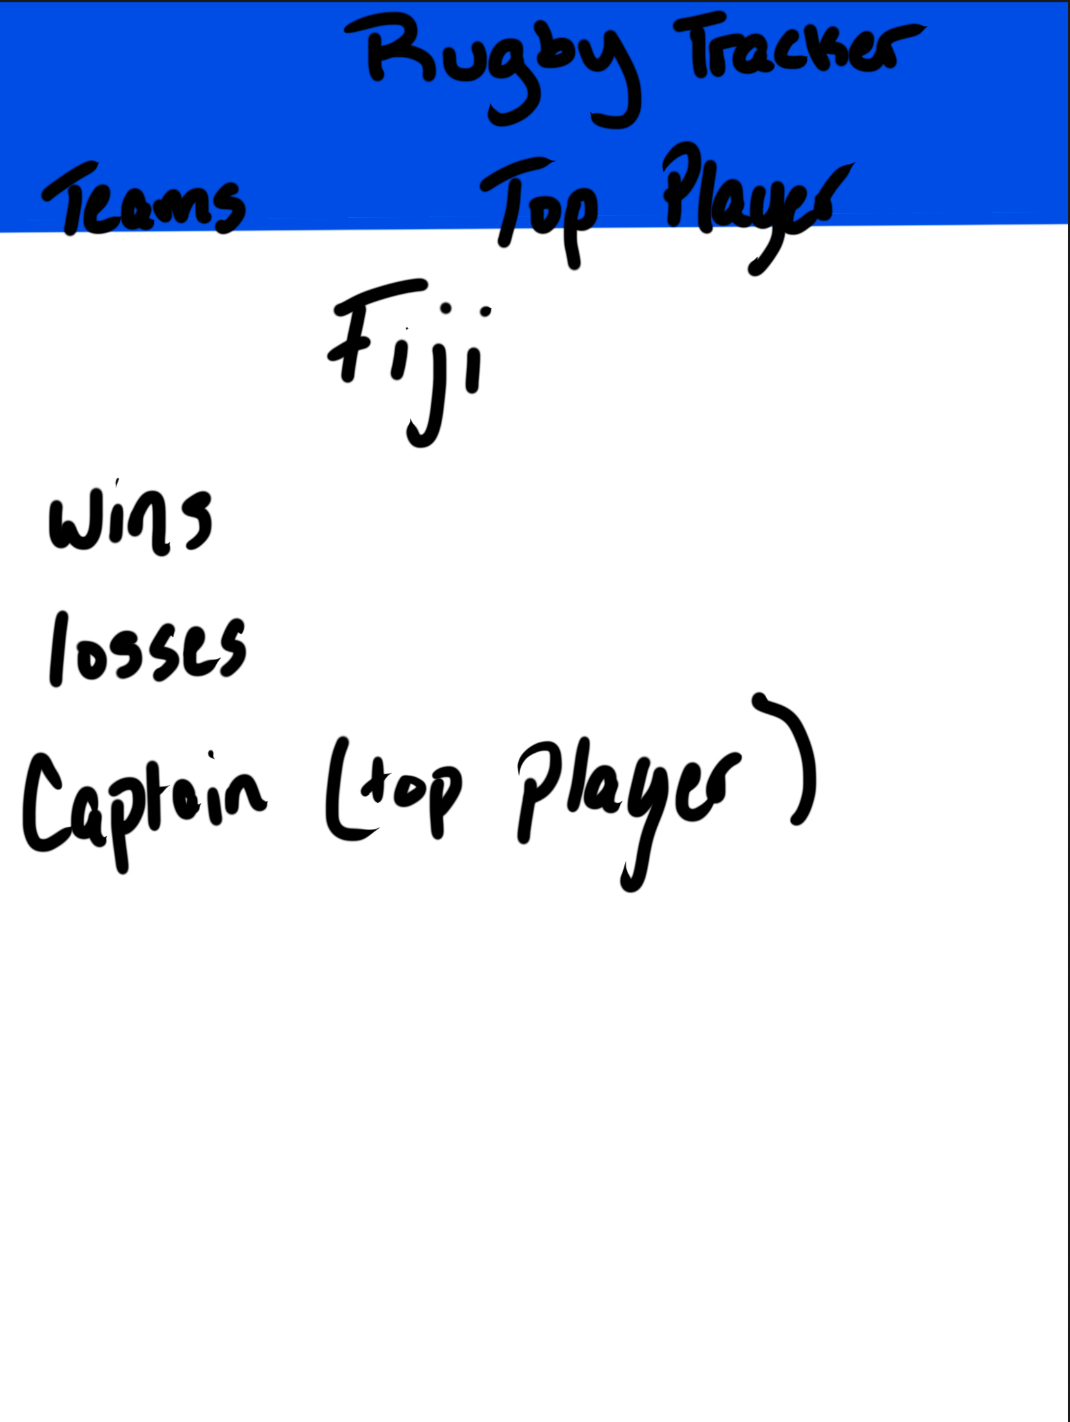 Rugby Tracker
Teams Top Player
Fiji
wins
losses
Captain (top player)